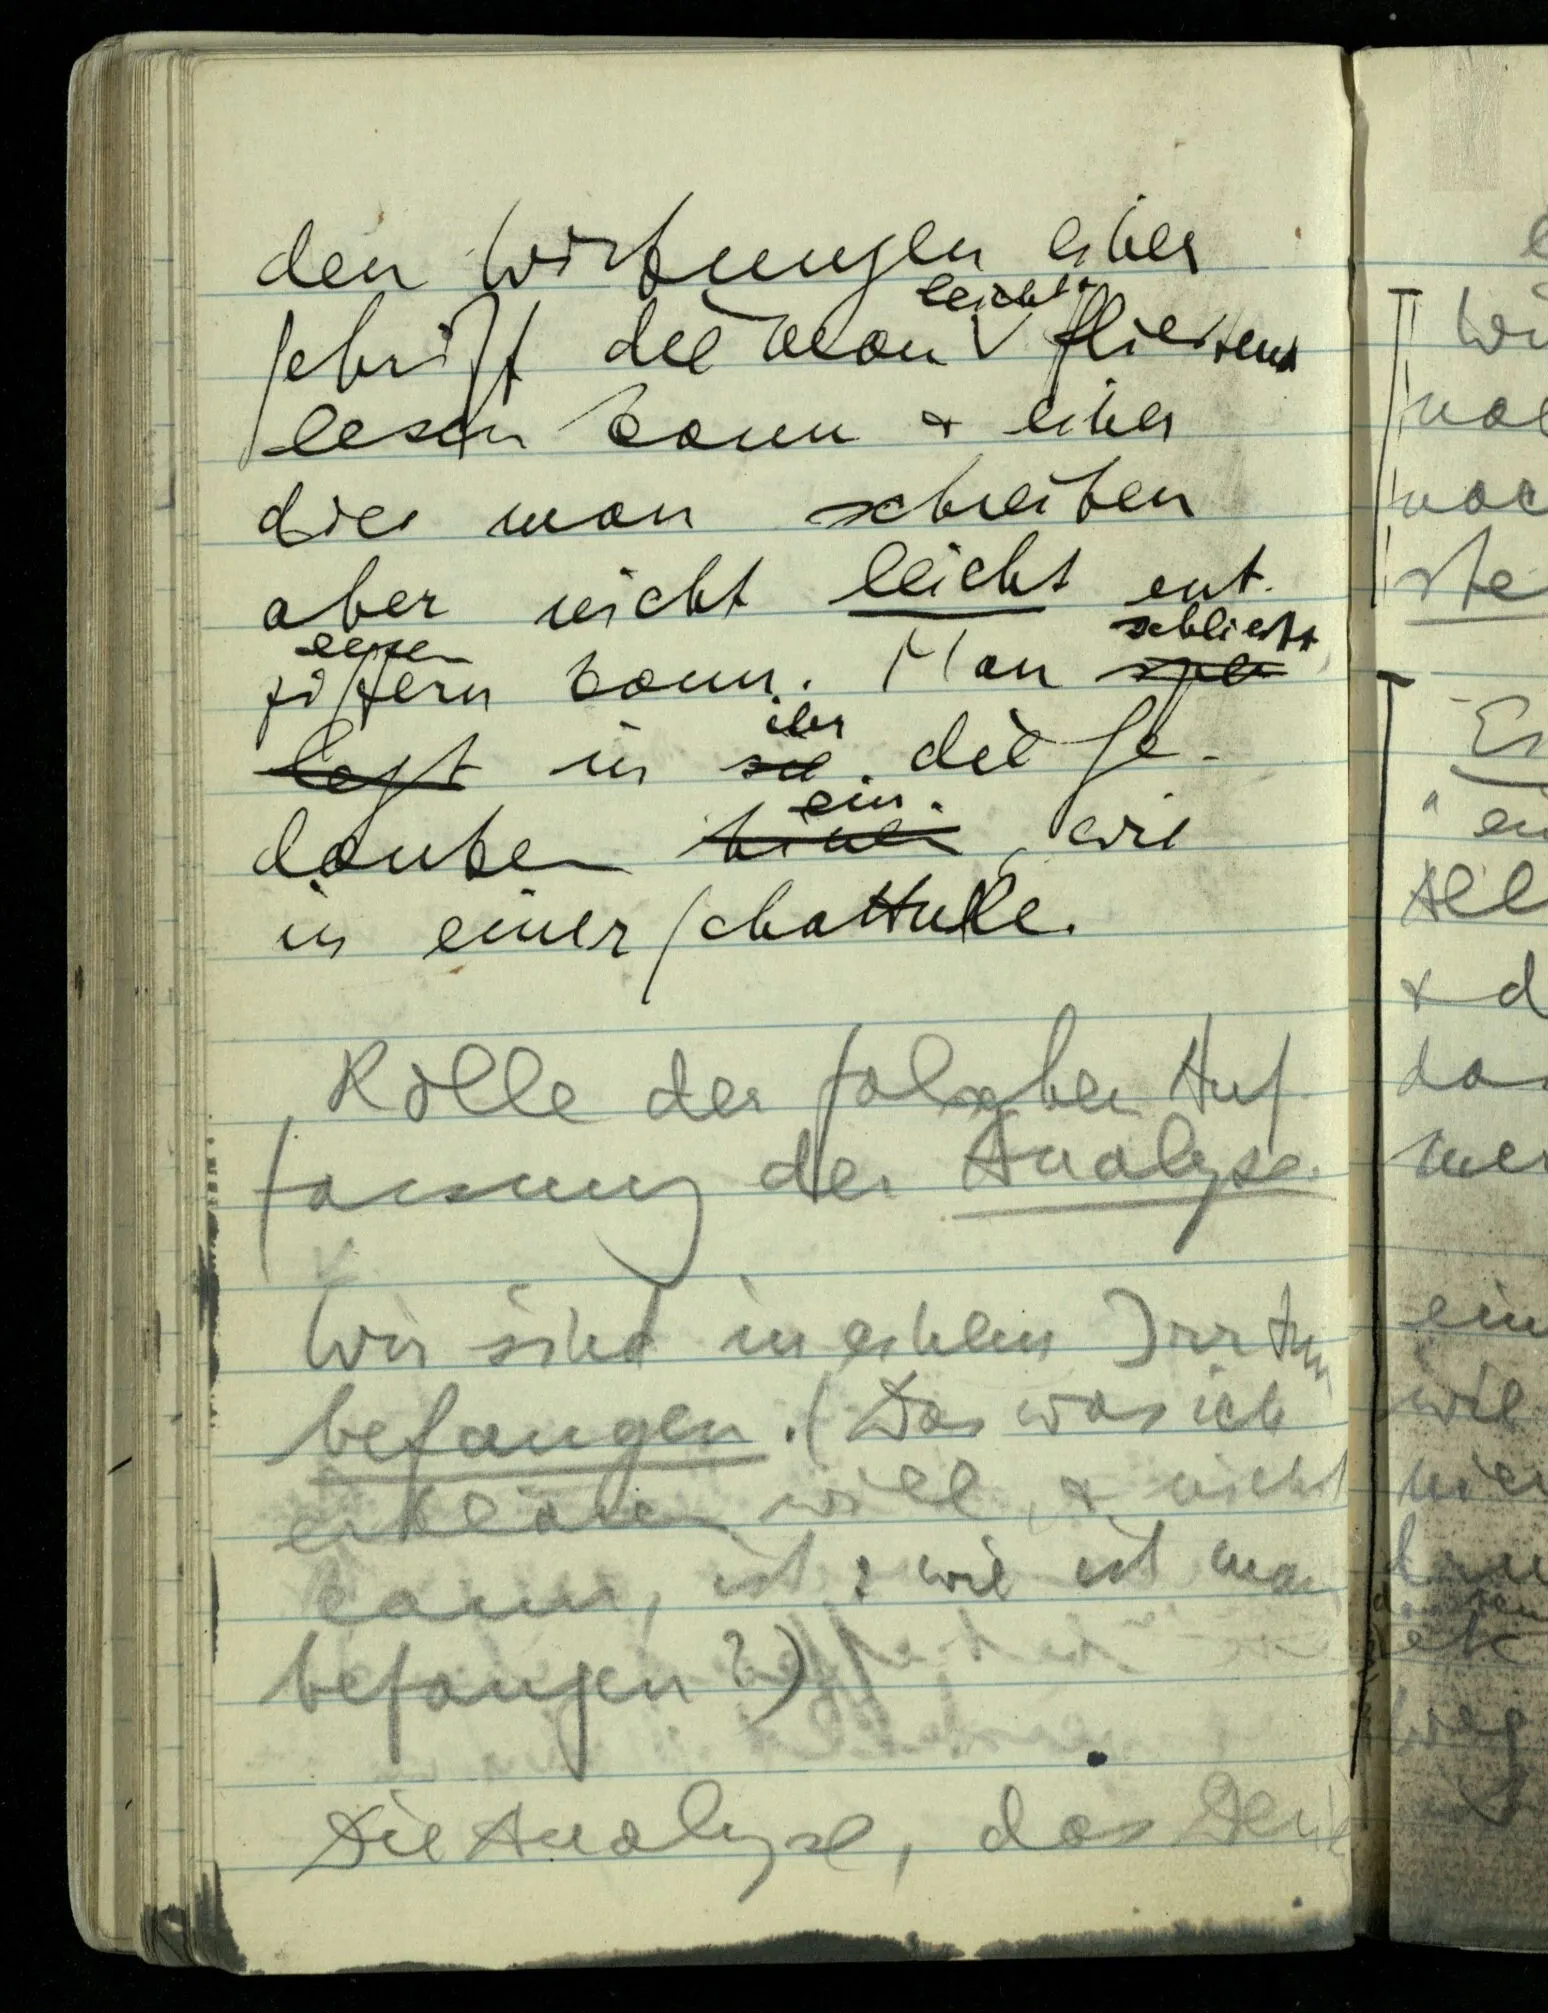 den Wirkungen einer
leicht
Schrift die man ∨ fliessend
lesen kann & einer
die man schreiben
aber nicht leicht ent-
ziffern kann. Man
lesen
schliesst
legt in sie die Ge-
ihr
danken hinein, wie
ein
in einer Schattulle.
Rolle der falschen Auf-
fassung der Analyse.
Wir sind in einem Irrtum
befangen. (Das was ich
erklären will, & nicht
kann, ist: wie ist man
befangen?)
Die Analyse, das Den
wi
noc
ste
Er
ei
All
& d
das
mer
ein
wie
nie
weg